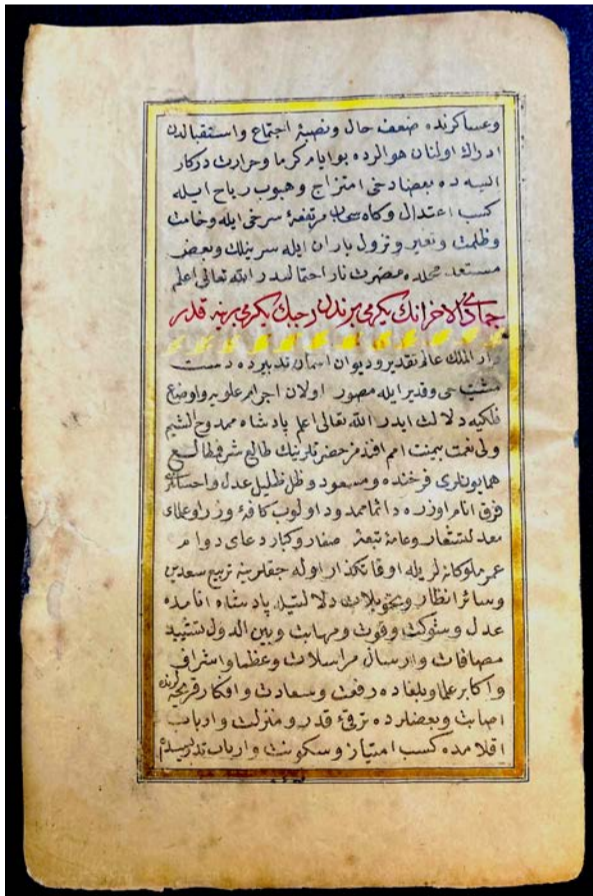 وعساكرنده ضعف حال ونصيۀ اجتماع واستقبالدن
ادراك اولنان هوالرده بو ايام كرما وحرارت دركار
ايسه ده بعضا دخى امتزاج وهبوب رياح ايله
كسب اعتدال وكاه سحاب مرتفعۀ سرخى ايله وخامت
وظلمت وتغير ونزول باران ايله سرينلك وبعض
مستعد محلده مضرت نار احتمالیدر الله تعالى اعلم
جمادى الاخرانك يكرمى برندن رجبك يكرمى برينه قدر
دار الملك عالم تقدير وديوان اسمان تدبيرده دست
مشيت حى وقدير ايله مصور اولان اجرام علويه واوضاع
فلكيه دلالت ايدر الله تعالى اعلم پادشاه ممدوح الشيم
ولى نعمت بيمنت امم افندمز حضرتلرينك طالع شرفمطالع
همايونلرى فرخنده ومسعود وظل ظليل عدل واحسانلرى
فرق انام اوزره دائما ممدود اولوب كافۀ وزرا وعلماى
معدلتشعار وعامۀ تبعۀ صغار وكبار دعاى دوام
عمر ملوكانه لريله اوقاتكذار اوله جقلرينه تربيع سعدين
وسائر انظار وتحويلات دلالتيله پادشاه انامده
عدل وشوكت وقوت ومهابت وبين الدول تشييد
مصافات وارسال مراسلات وعظما واشراف
واكابر علما وبلغاده رفعت وسعادت وافكار قريحه لرنده
اصابت وبعضلرده ترقئ قدر ومنزلت وارباب
اقلامده كسب امتياز وسكونت وارباب تدريسده